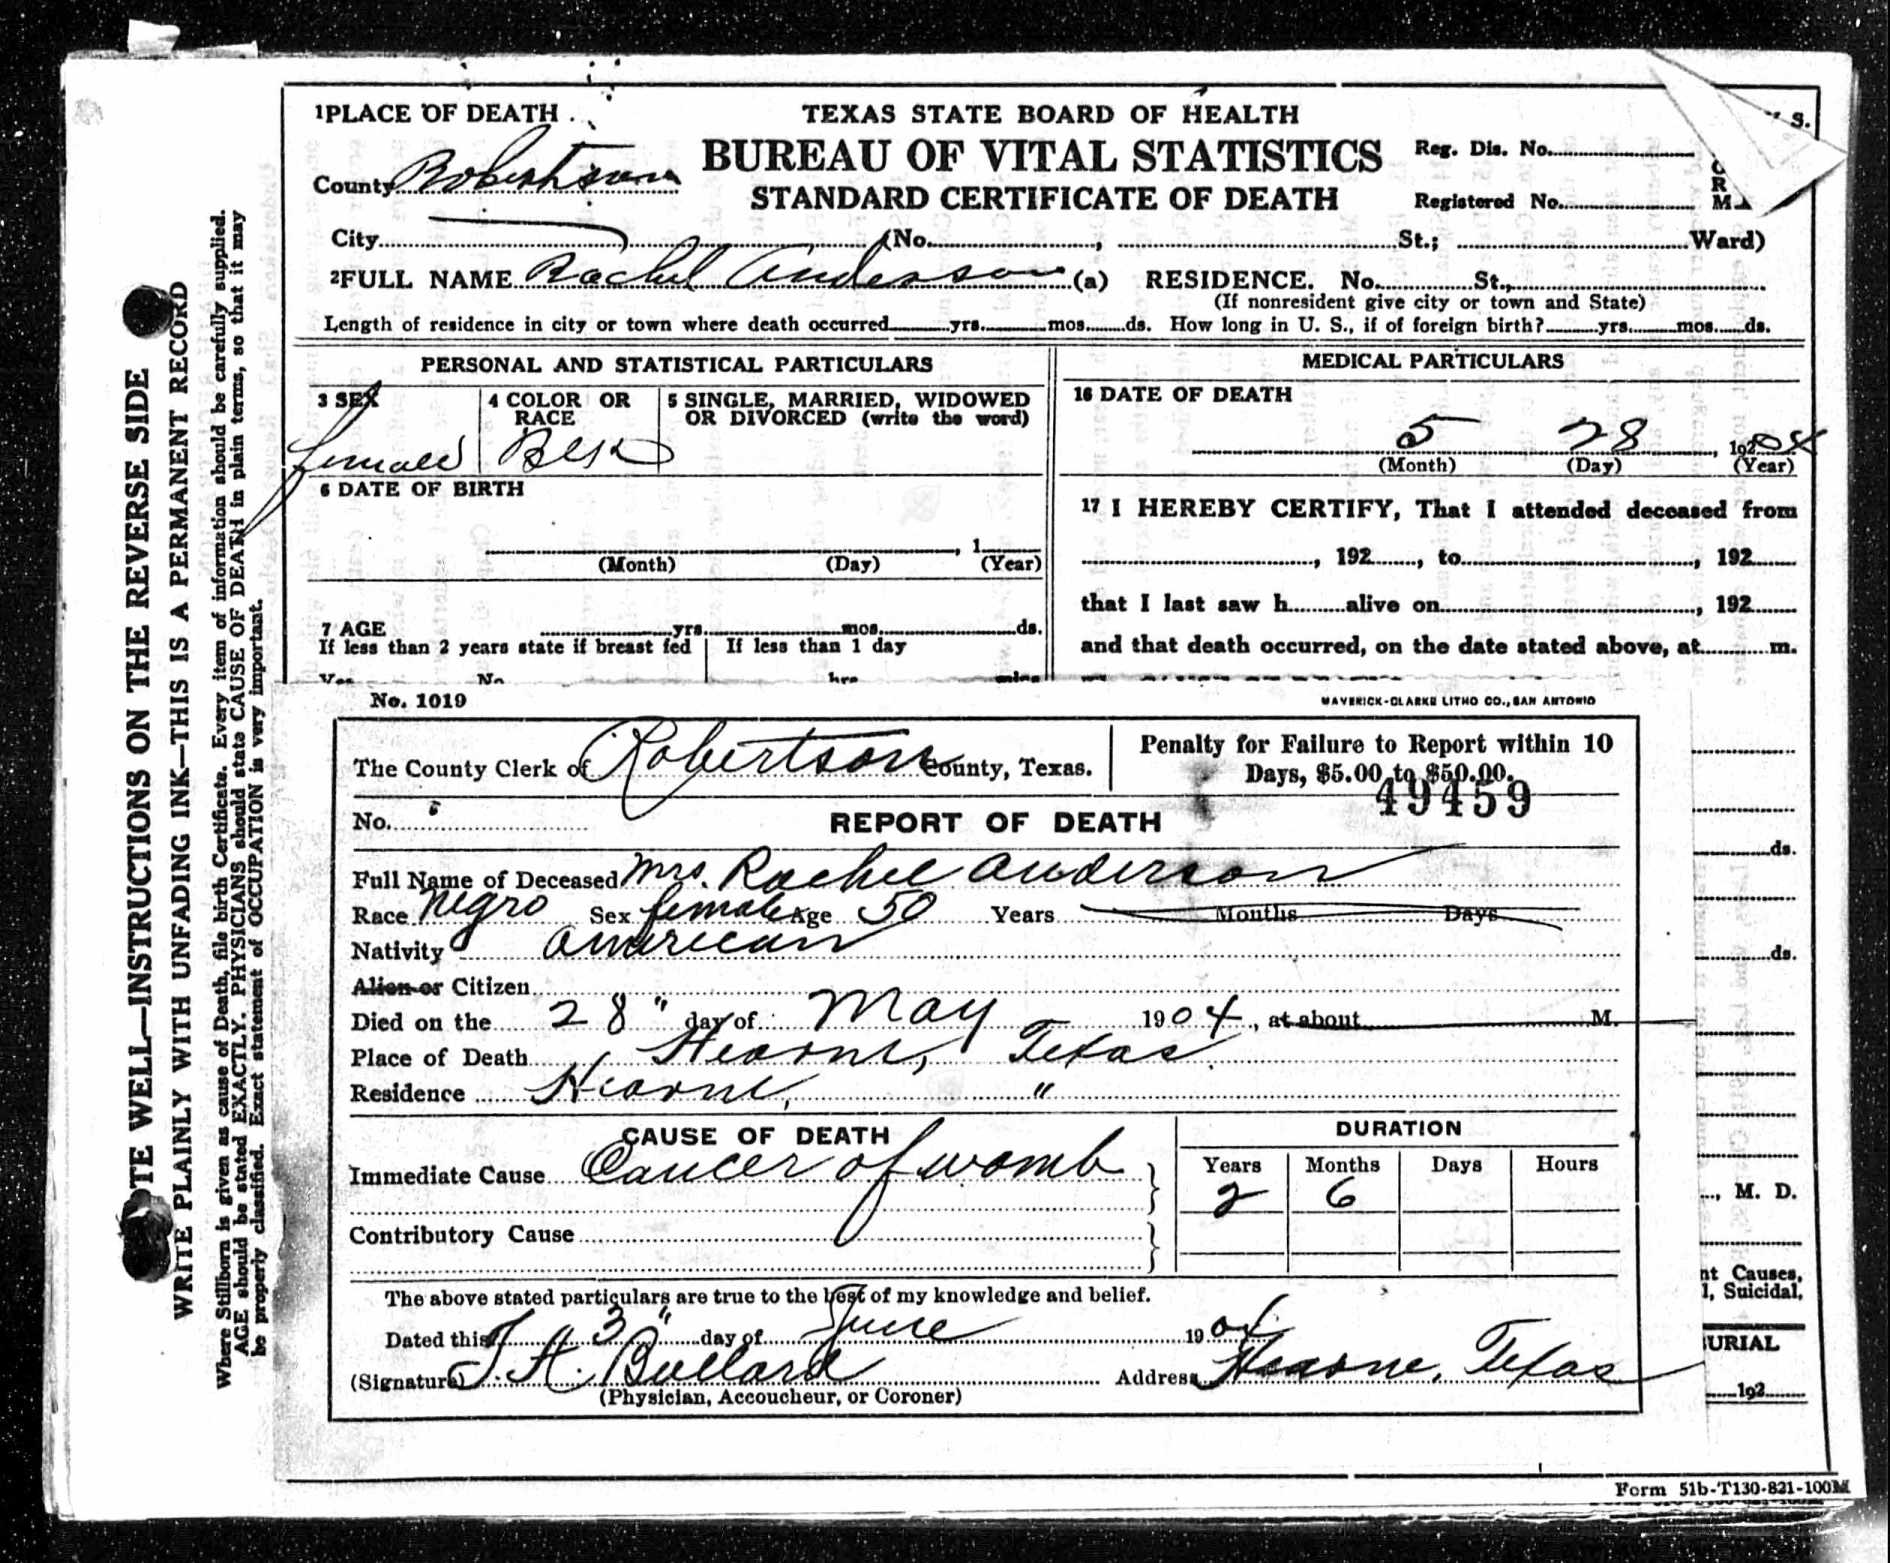 1 PLACE OF DEATH
TEXAS STATE BOARD OF HEALTH
BUREAU OF VITAL STATISTICS
STANDARD CERTIFICATE OF DEATH
Reg. Dis. No.
Registered No.
County Robertson
City (No. , St.; Ward)
2 FULL NAME Rachel Anderson (a) RESIDENCE. No. St.,
(If nonresident give city or town and State)
Length of residence in city or town where death occurred yrs. mos. ds. How long in U. S., if of foreign birth? yrs. mos. ds.
PERSONAL AND STATISTICAL PARTICULARS
3 SEX
female
4 COLOR OR RACE
Blk
5 SINGLE, MARRIED, WIDOWED
OR DIVORCED (write the word)
6 DATE OF BIRTH
, 1
(Month) (Day) (Year)
7 AGE yrs. mos. ds.
If less than 2 years state if breast fed
If less than 1 day
Yes No hrs. mins
MEDICAL PARTICULARS
16 DATE OF DEATH
5 28 , 1904
(Month) (Day) (Year)
17 I HEREBY CERTIFY, That I attended deceased from
, 192 , to , 192
that I last saw h alive on , 192
and that death occurred, on the date stated above, at m.
No. 1019
MAVERICK-CLARKE LITHO CO., SAN ANTONIO
The County Clerk of Robertson County, Texas.
Penalty for Failure to Report within 10
Days, $5.00 to $50.00.
49459
No.
REPORT OF DEATH
Full Name of Deceased Mrs. Rachel Anderson
Race Negro Sex female Age 50 Years Months Days
Nativity American
Alien or Citizen
Died on the 28" day of May 1904, at about M.
Place of Death Hearne, Texas
Residence Hearne, "
CAUSE OF DEATH
Immediate Cause Cancer of womb
Contributory Cause
DURATION
Years Months Days Hours
2 6
The above stated particulars are true to the best of my knowledge and belief.
Dated this 3" day of June 1904
(Signature) J. H. Bullard Address Hearne, Texas
(Physician, Accoucheur, or Coroner)
ds.
ds.
, M. D.
nt Causes,
l, Suicidal,
URIAL
192
Form 51b-T130-821-100M
TE WELL—INSTRUCTIONS ON THE REVERSE SIDE
WRITE PLAINLY WITH UNFADING INK—THIS IS A PERMANENT RECORD
Where Stillborn is given as cause of Death, file birth Certificate. Every item of information should be carefully supplied.
AGE should be stated EXACTLY. PHYSICIANS should state CAUSE OF DEATH in plain terms, so that it may
be properly classified. Exact statement of OCCUPATION is very important.